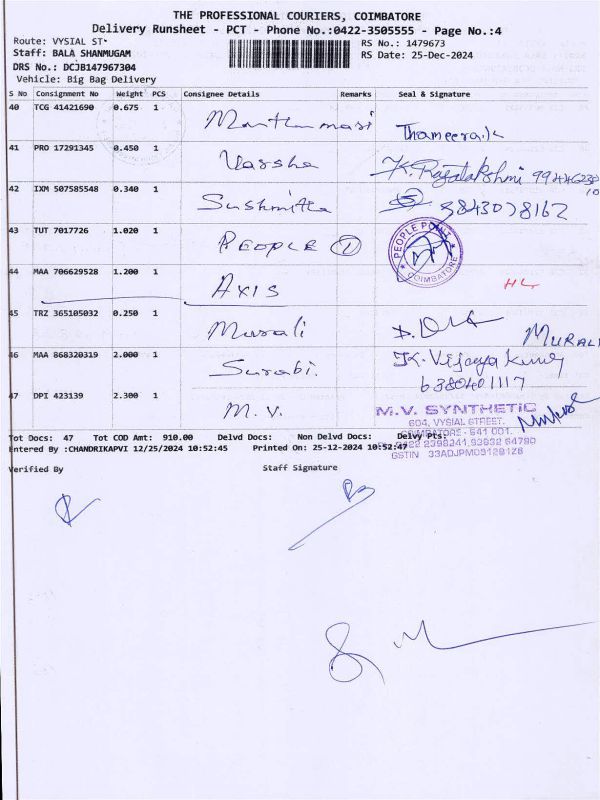 THE PROFESSIONAL COURIERS, COIMBATORE
Delivery Runsheet - PCT - Phone No.:0422-3505555 - Page No.:4
Route: VYSIAL ST
RS No.: 1479673
Staff: BALA SHANMUGAM
RS Date: 25-Dec-2024
DRS No.: DCJB147967304
Vehicle: Big Bag Delivery
S No Consignment No Weight PCS Consignee Details Remarks Seal & Signature
40 TCG 41421690 0.675 1
41 PRO 17291345 0.450 1 Varsha K. Rajalakshmi
42 IXM 507585548 0.340 1 Sushmitha 9843078162
43 TUT 7017726 1.020 1 PEOPLE 1 PEOPLE POINT COIMBATORE
44 MAA 706629528 1.200 1 AXIS
45 TRZ 365105032 0.250 1 Murali MURALI
46 MAA 868320319 2.000 1 Surabi. K. Vijaya Kumar
6380401117
47 DPI 423139 2.300 1 M.V. M.V. SYNTHETIC
604, VYSIAL STREET,
COIMBATORE - 641 001.
Tot Docs: 47 Tot COD Amt: 910.00 Delvd Docs: Non Delvd Docs: Delvy Pts:
Entered By :CHANDRIKAPVI 12/25/2024 10:52:45 Printed On: 25-12-2024 10:52:47
Verified By Staff Signature